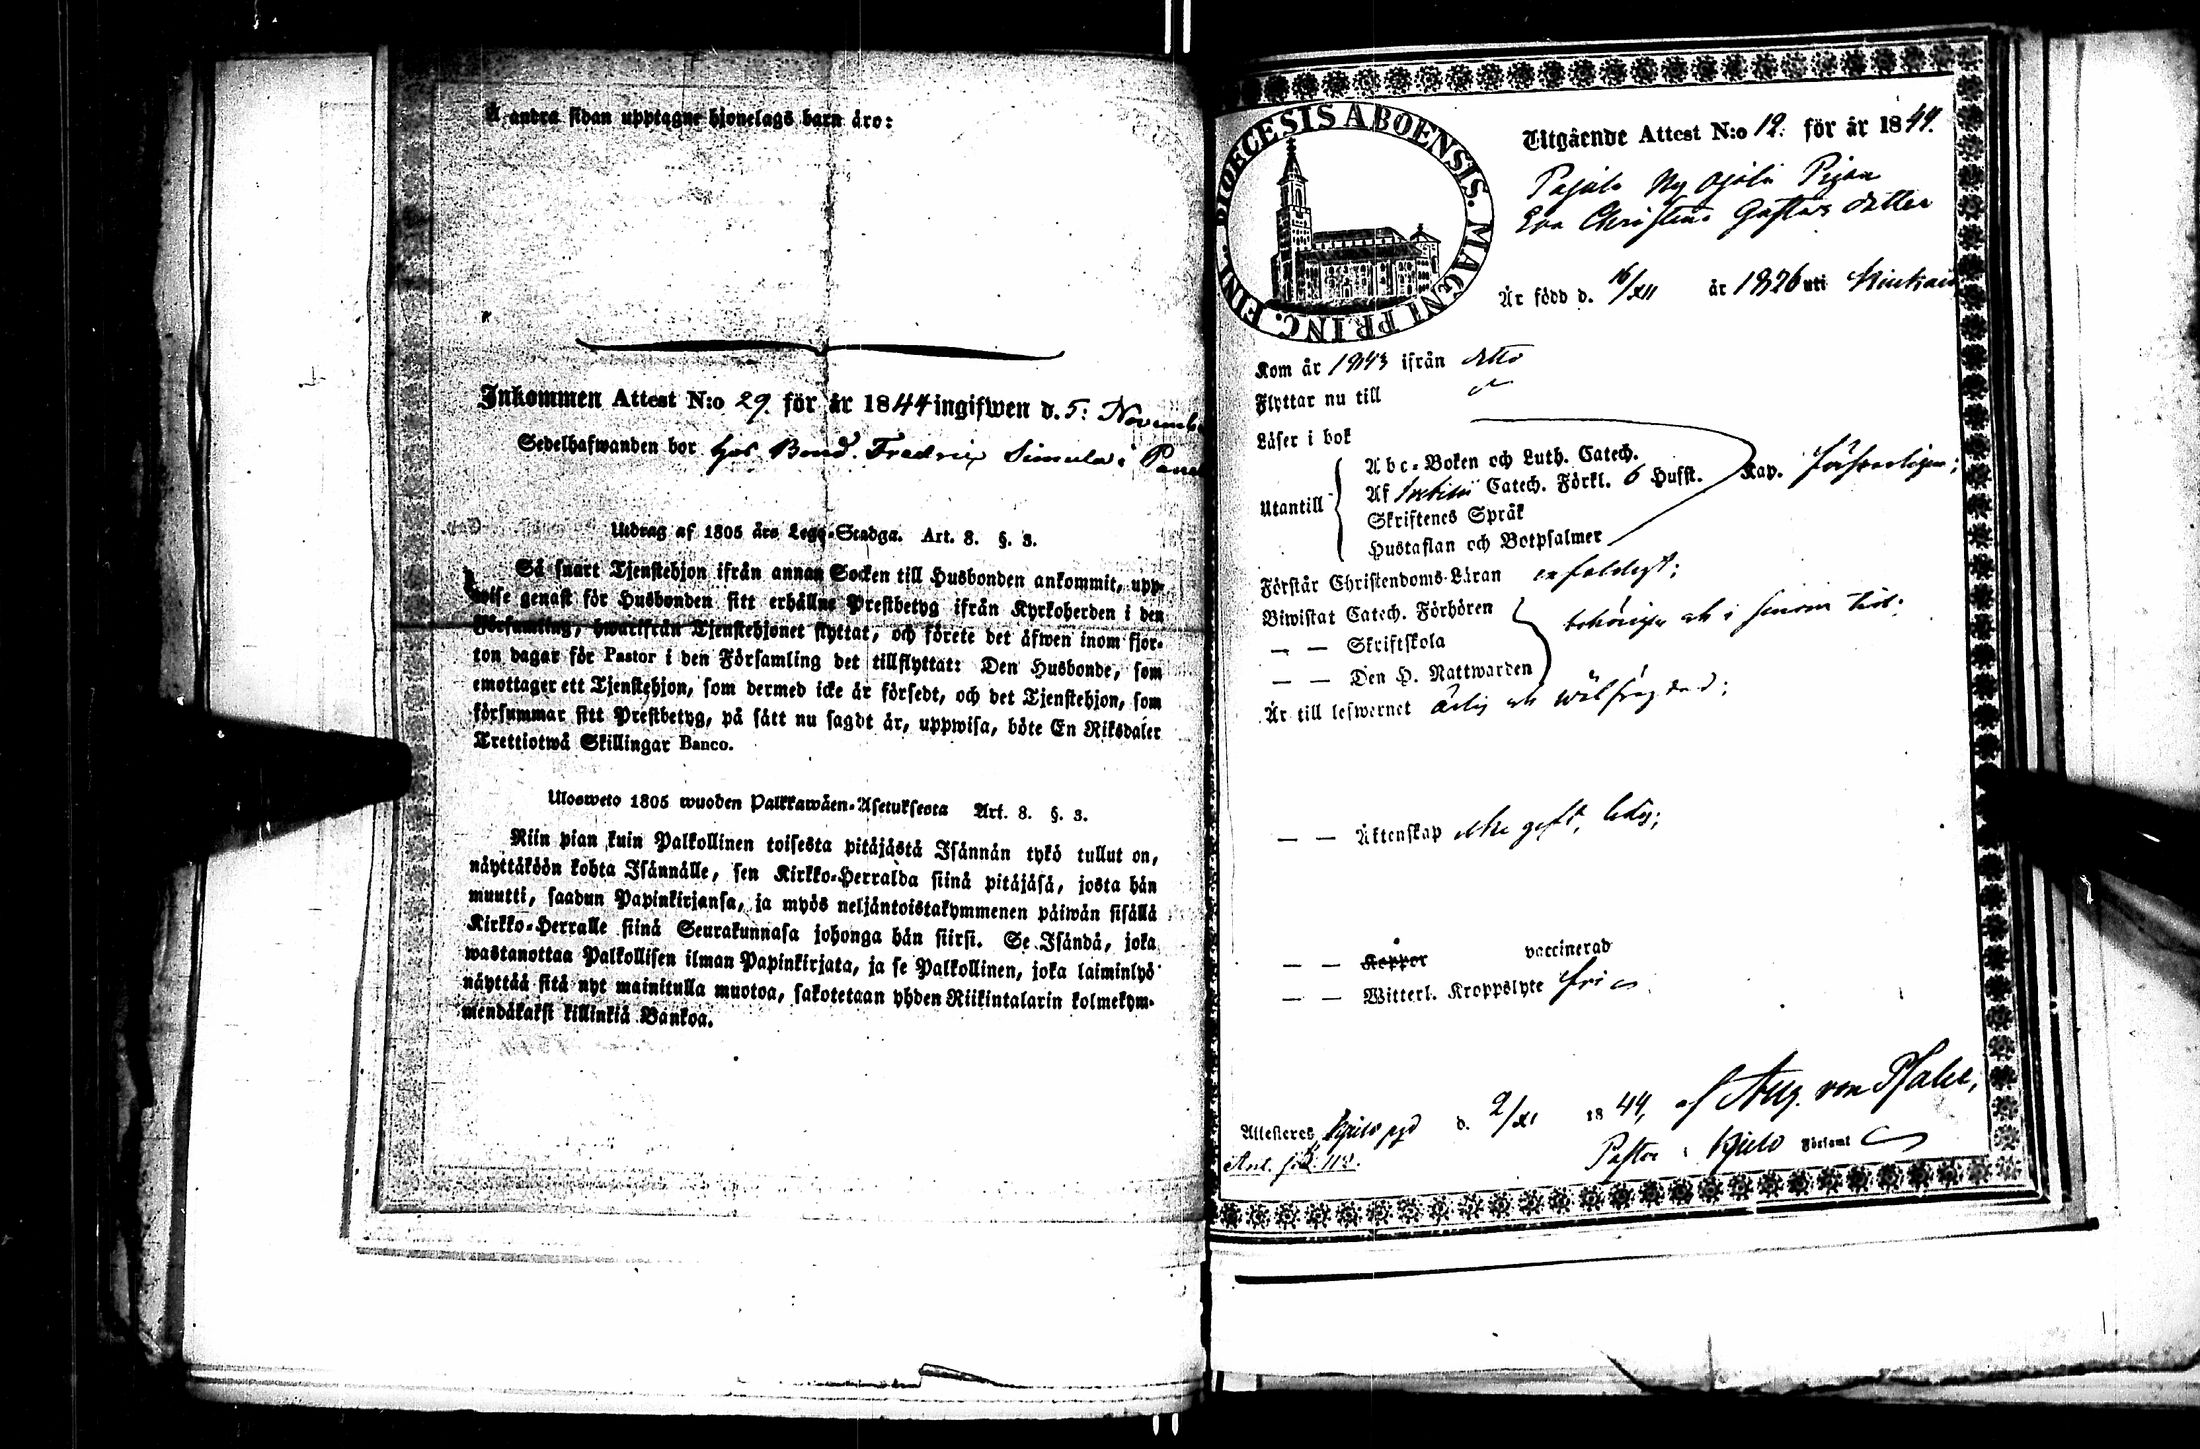 Å andra sidan upptagne hjonelags barn äro:
Inkommen Attest N:o 29. för år 1844 ingifwen d. 5: Novemb
Sedelhafwanden bor hos Bond. Fredric Simula i
Utdrag af 1805 års Lego-Stadga. Art. 8. §. 3.
Så snart Tjenstehjon ifrån annan Socken till Husbonden ankommit, upp-
wise genast för Husbonden sitt erhållne Prestbetyg ifrån Kyrkoherden i den
Församling, hwarifrån Tjenstehjonet flyttat, och förete det äfwen inom fjor-
ton dagar för Pastor i den Församling det tillflyttat: Den Husbonde, som
emottager ett Tjenstehjon, som dermed icke är försedt, och det Tjenstehjon, som
försummar sitt Prestbetyg, på sätt nu sagdt är, uppwisa, böte En Riksdaler
Trettiotwå Skillingar Banco.
Ulosweto 1805 wuoden Palkkawäen-Asetuksesta Art. 8. §. 3.
Niin pian kuin Palkollinen toisesta pitäjästä Isännän tykö tullut on,
näyttäköön kohta Isännälle, sen Kirkko-Herralda siinä pitäjäsä, josta hän
muutti, saadun Papinkirjansa, ja myös neljäntoistakymmenen päiwän sisällä
Kirkko-Herralle siinä Seurakunnasa johonga hän siirsi. Se Isändä, joka
wastanottaa Palkollisen ilman Papinkirjata, ja se Palkollinen, joka laiminlyö
näyttää sitä nyt mainitulla muotoa, sakotetaan yhden Riikintalarin kolmekym-
mendäkaksi killinkiä Bankoa.
DIOECESIS ABOENSIS. MAGNI PRINC. FINL.
Utgående Attest N:o 12. för år 1844.
Pigan
Eva Christina Gustavs dotter
Är född d. 16/XII år 1826 uti
Kom år 1843 ifrån
Flyttar nu till
Läser i bok
Utantill
Abc-Boken och Luth. Catech.
Af Catech. Förkl. 6 Hufst. Kap. försvarligen;
Skriftenes Språk
Hustaflan och Botpsalmer
Förstår Christendoms-Läran enfaldigt;
Biwistat Catech. Förhören
— — Skriftskola behörigen och i sinom tid:
— — Den H. Nattwarden
Är till leswernet ärlig och wälfräjdad;
— — Äktenskap icke gift, ledig;
— — Koppor vaccinerad
— — Witterl. Kroppslyte fri
Attesteres Kjulo pgd d. 2/XI 1844, af Aug. von Pfaler,
Pastor i Kjulo Församl